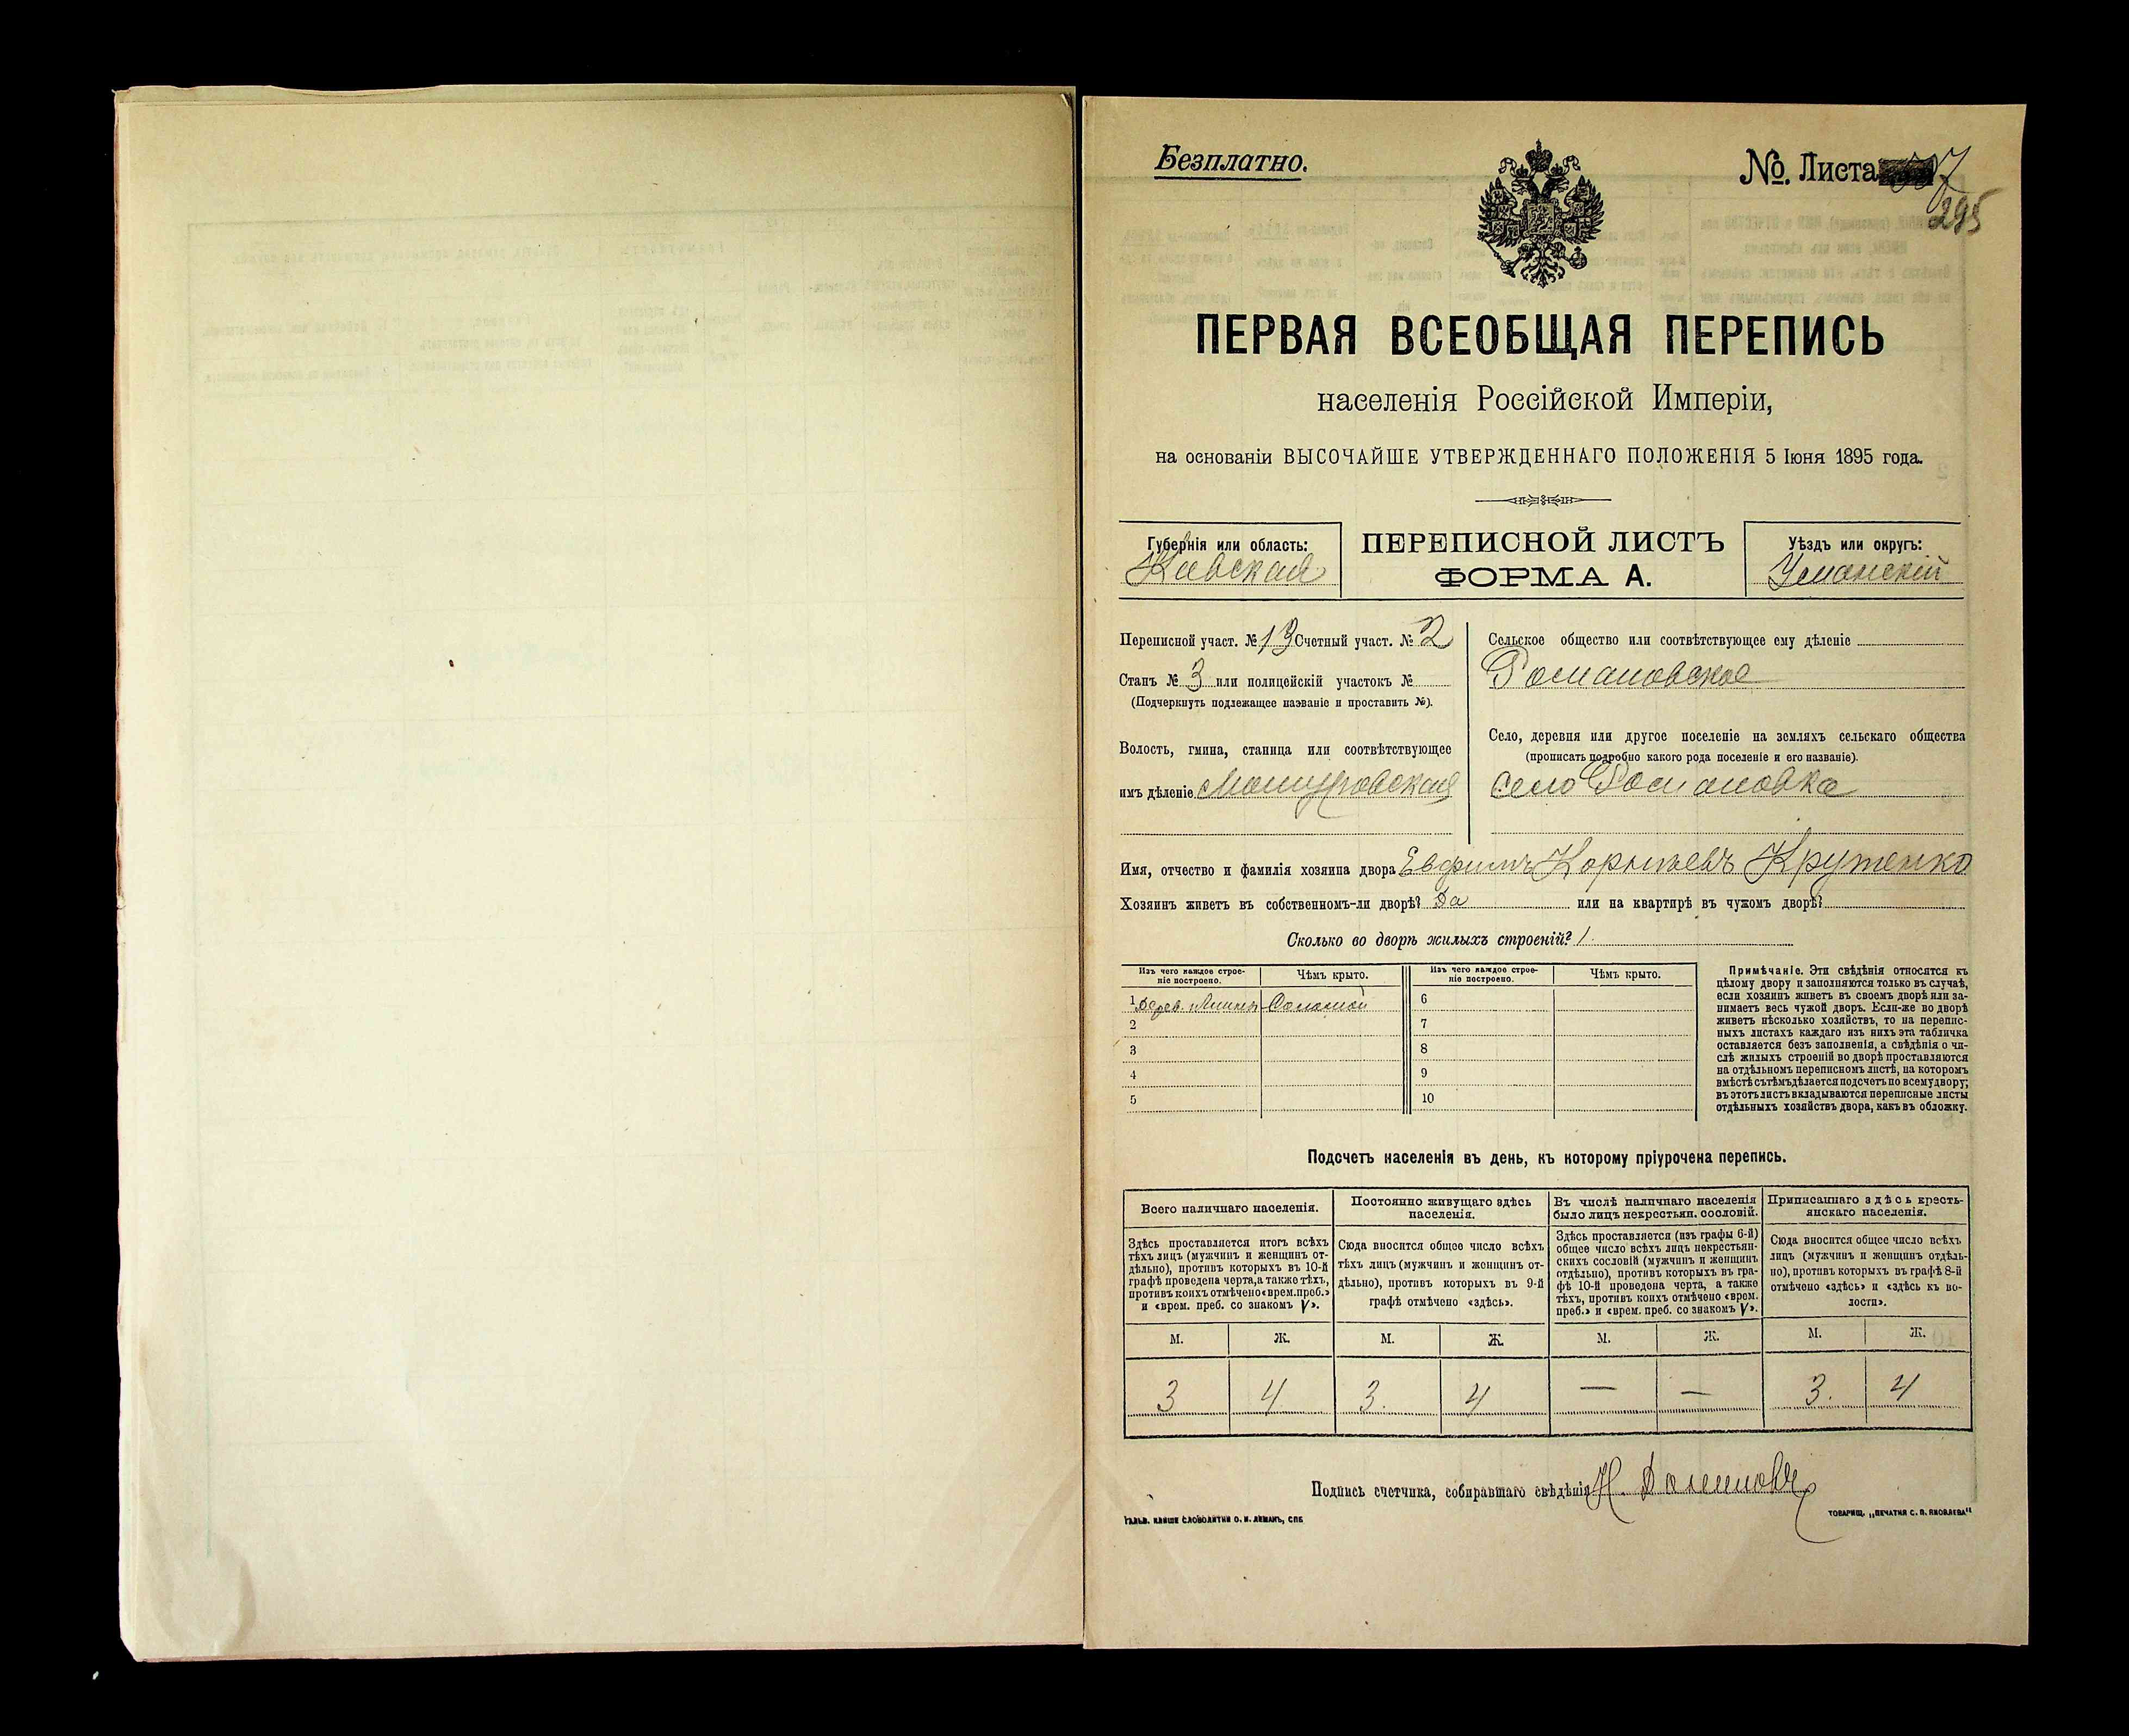 Безплатно.
№ Листа
295
ПЕРВАЯ ВСЕОБЩАЯ ПЕРЕПИСЬ
населенія Россійской Имперіи,
на основаніи ВЫСОЧАЙШЕ УТВЕРЖДЕННАГО ПОЛОЖЕНІЯ 5 Іюня 1895 года.
Губернія или область:
Кіевская
ПЕРЕПИСНОЙ ЛИСТЪ
ФОРМА А.
Уѣздъ или округъ:
Уманскій
Переписной участ. № 13 Счетный участ. № 2
Станъ № 3 или полицейскій участокъ №
(Подчеркнуть подлежащее названіе и проставить №).
Волость, гмина, станица или соотвѣтствующее
имъ дѣленіе
Сельское общество или соотвѣтствующее ему дѣленіе
Романовское
Село, деревня или другое поселеніе на земляхъ сельскаго общества
(прописать подробно какого рода поселеніе и его названіе).
село Романовка
Имя, отчество и фамилія хозяина двора Евфимъ Корнѣевъ
Хозяинъ живетъ въ собственномъ-ли дворѣ? Да или на квартирѣ въ чужомъ дворѣ?
Сколько во дворѣ жилыхъ строеній? 1.
Изъ чего каждое строе-
ніе построено.
Чѣмъ крыто.
Изъ чего каждое строе-
ніе построено.
Чѣмъ крыто.
1 Дерев. и глины Соломой
2
3
4
5
6
7
8
9
10
Примѣчаніе. Эти свѣдѣнія относятся къ
цѣлому двору и заполняются только въ случаѣ,
если хозяинъ живетъ въ своемъ дворѣ или за-
нимаетъ весь чужой дворъ. Если-же во дворѣ
живетъ нѣсколько хозяйствъ, то на перепис-
ныхъ листахъ каждаго изъ нихъ эта табличка
оставляется безъ заполненія, а свѣдѣнія о чи-
слѣ жилыхъ строеній во дворѣ проставляются
на отдѣльномъ переписномъ листѣ, на которомъ
вмѣстѣ съ тѣмъ дѣлается подсчетъ по всему двору;
въ этотъ листъ вкладываются переписные листы
отдѣльныхъ хозяйствъ двора, какъ въ обложку.
Подсчетъ населенія въ день, къ которому пріурочена перепись.
Всего наличнаго населенія.
Здѣсь проставляется итогъ всѣхъ
тѣхъ лицъ (мужчинъ и женщинъ от-
дѣльно), противъ которыхъ въ 10-й
графѣ проведена черта, а также тѣхъ,
противъ коихъ отмѣчено «врем. преб.»
и «врем. преб. со знакомъ V».
Постоянно живущаго здѣсь
населенія.
Сюда вносится общее число всѣхъ
тѣхъ лицъ (мужчинъ и женщинъ от-
дѣльно), противъ которыхъ въ 9-й
графѣ отмѣчено «здѣсь».
Въ числѣ наличнаго населенія
было лицъ некрестьян. сословій.
Здѣсь проставляется (изъ графы 6-й)
общее число всѣхъ лицъ некрестьян-
скихъ сословій (мужчинъ и женщинъ
отдѣльно), противъ которыхъ въ гра-
фѣ 10-й проведена черта, а также
тѣхъ, противъ коихъ отмѣчено «врем.
преб.» и «врем. преб. со знакомъ V».
Приписаннаго здѣсь кресть-
янскаго населенія.
Сюда вносится общее число всѣхъ
лицъ (мужчинъ и женщинъ отдѣль-
но), противъ которыхъ въ графѣ 8-й
отмѣчено «здѣсь» и «здѣсь къ во-
лости».
М. Ж. М. Ж. М. Ж. М. Ж.
3 4 3. 4 — — 3. 4
Подпись счетчика, собиравшаго свѣдѣнія Н.
ГАЛЬВ. КЛИШЕ СЛОВОЛИТНИ О. И. ЛЕМАНЪ, СПБ
ТОВАРИЩ. „ПЕЧАТНЯ С. П. ЯКОВЛЕВА"